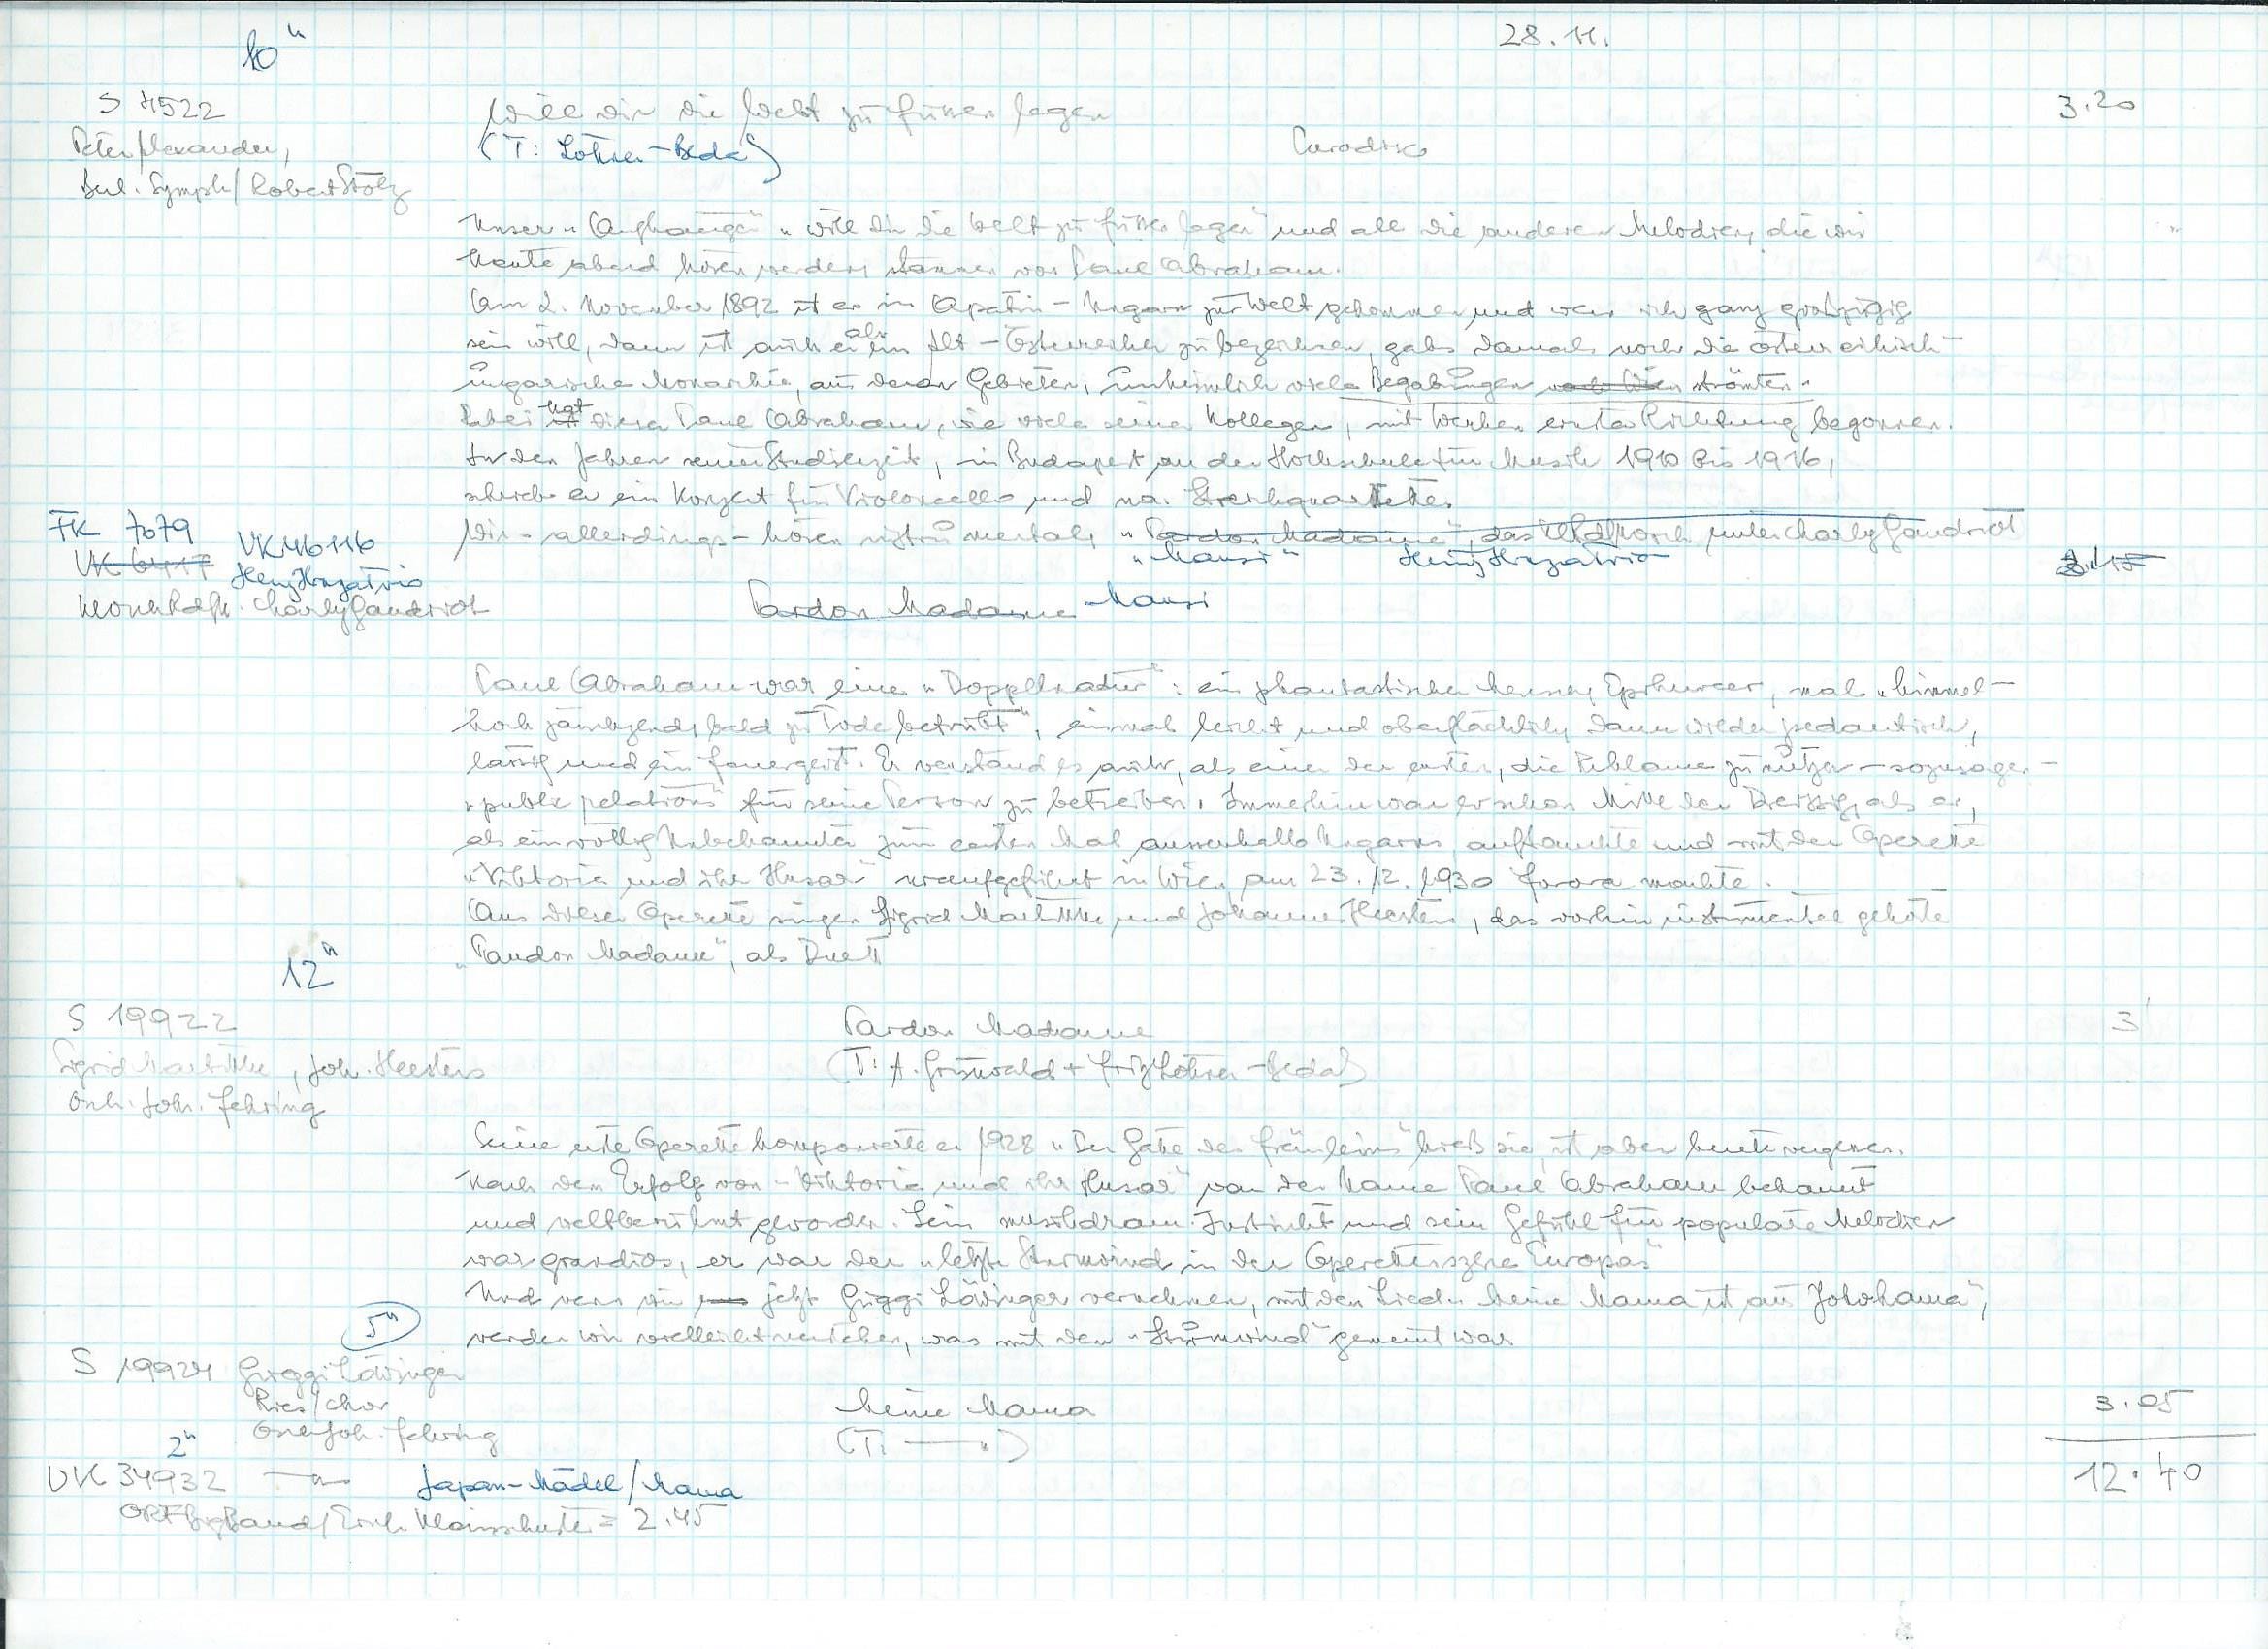 28. 11.
10"
S 4522
Will dir die Welt zu Füssen legen
3.20
Peter Alexander,
(T: Löhner-Beda)
Eurodisc
Berl. Symph / Robert Stolz
Unser "Anfhänge" "Will dir die Welt zu Füssen legen" und all die anderen Melodien, die wir
heute abend hören werden, stammen von Paul Abraham.
Am 2. November 1892 ist er in Apatin - Ungarn zur Welt gekommen und wenn ich ganz großzügig
sein will, dann ist auch er als ein Alt-Österreicher zu bezeichnen, gabs damals noch die österreichisch-
ungarische Monarchie, aus deren Gebieten, unheimlich viele Begabungen nach Wien strömten.
Dabei hat dieser Paul Abraham, wie viele seiner Kollegen, mit Werken ernster Richtung begonnen.
In den Jahren seiner Studienzeit, in Budapest an der Hochschule für Musik 1910 bis 1916,
schrieb er ein Konzert für Violoncello und na. Streichquartette.
FK 7079
Wir - allerdings - hören instrumental, "Pardon Madame", das unter Charly Gaudriot
VK 6417
VK46116
"Mausi" Heinz Hruza Trio
3.15
Heinz Hruza Trio
Charly Gaudriot
Pardon Madame Mausi
Paul Abraham war eine "Doppelnatur": ein phantastischer Mensch, Epikureer, mal "himmel-
hoch jauchzend, bald zu Tode betrübt", einmal leicht und oberflächlich, dann wieder pedantisch,
lässig und ein Feuergeist. Er verstand es auch, als einer der ersten, die Reklame zu nützen - sozusagen -
"public relations" für seine Person zu betreiben. Immerhin war er schon Mitte der Dreissig, als er,
als ein völlig Unbekannter zum ersten Mal ausserhalb Ungarns auftauchte und mit der Operette
"Viktoria und ihr Husar" uraufgeführt in Wien am 23.12.1930 furore machte.
Aus dieser Operette singen Sigrid Martikke und Johannes Heesters, das vorhin instrumental gehörte
"Pardon Madame", als Duett
12"
S 19922
Pardon Madame
3'
Sigrid Martikke, Joh. Heesters
(T: A. Grünwald + Fritz Löhner-Beda)
Orch. Joh. Fehring
Seine erste Operette komponierte er 1928 "Der Gatte des Fräuleins" hieß sie, ist aber heute vergessen.
Nach dem Erfolg von "Viktoria und ihr Husar" war der Name Paul Abraham bekannt
und weltberühmt geworden. Sein musikdram. Instinkt und sein Gefühl für populäre Melodien
war grandios, er war der "letzte Sturmwind in der Operettenszene Europas"
Und wenn wir jetzt Guggi Löwinger vernehmen, mit dem Lied "Meine Mama ist aus Yokohama",
5"
werden wir vielleicht verstehen, was mit dem "Sturmwind" gemeint war.
S 19924 Guggi Löwinger
Ries / Chor
Meine Mama
3.05
Orch Joh. Fehring
(T: —"—)
2"
12.40
UK 34932 —"— Japan-Mädel / Mama
ORF Big Band / Erich Kleinschuster = 2.45